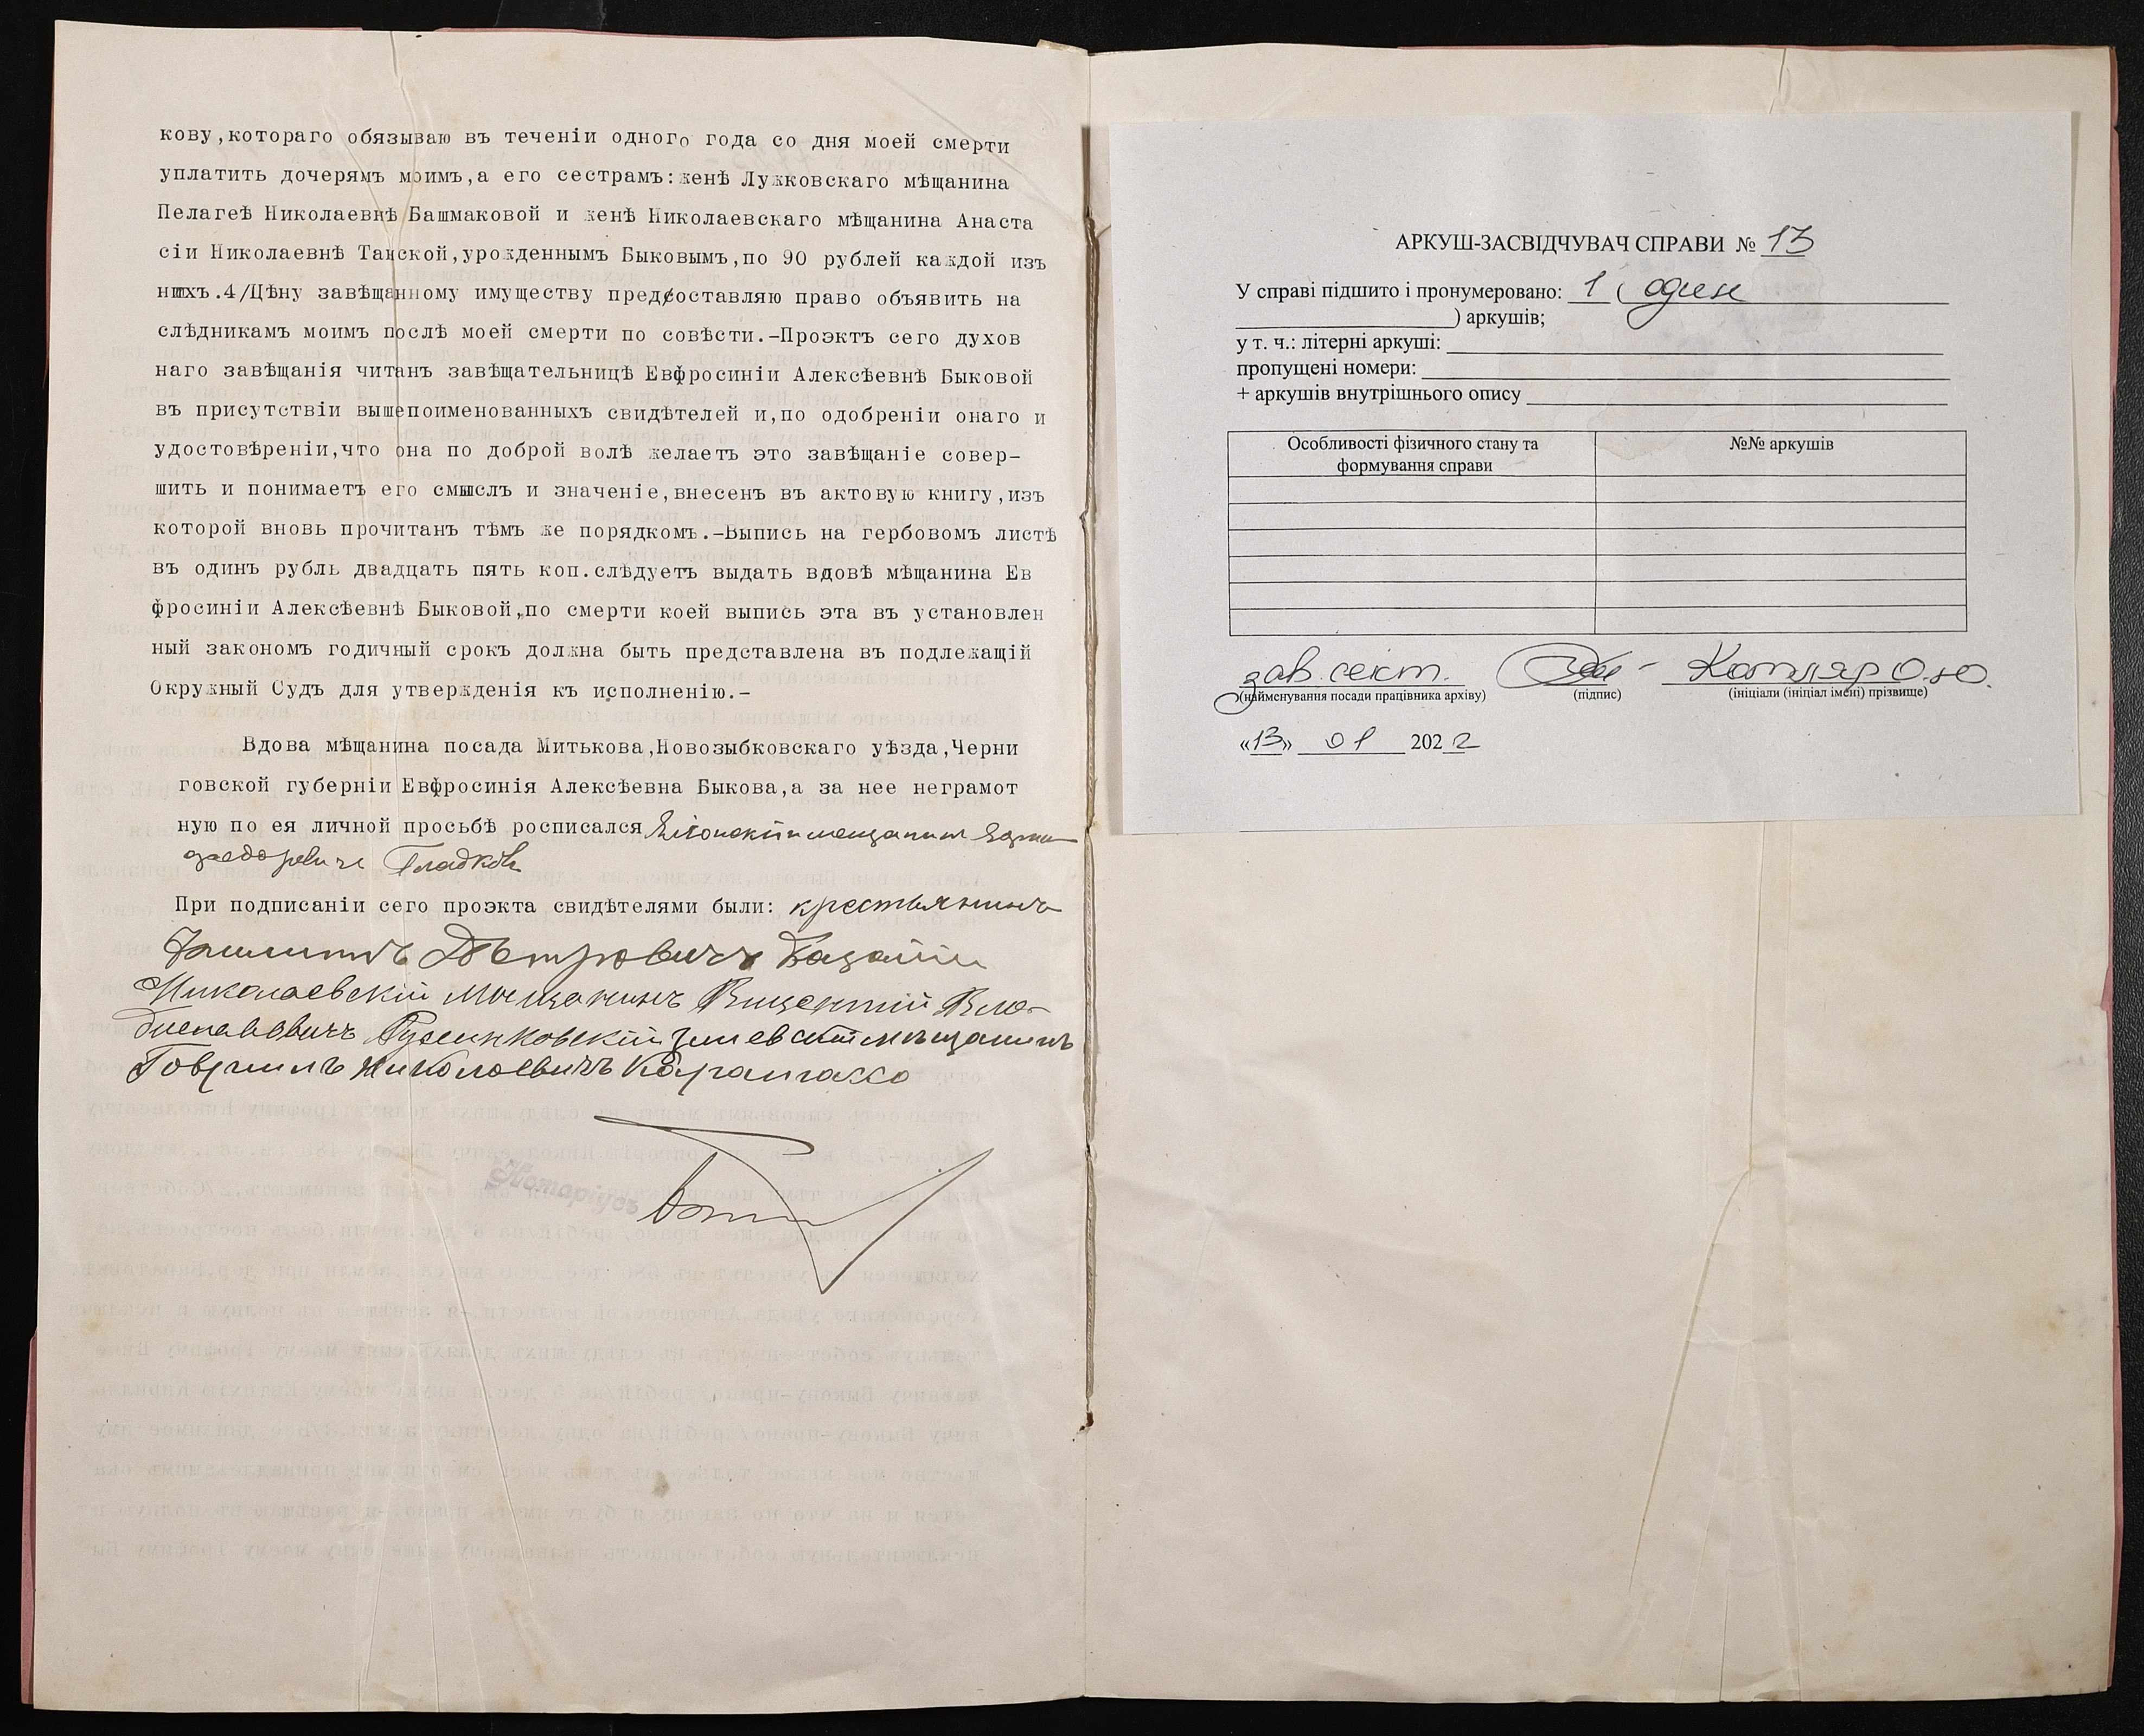 кову,котораго обязываю въ теченіи одного года со дня моей смерти
уплатить дочерямъ моимъ,а его сестрамъ:женѣ Лужковскаго мѣщанина
Пелагеѣ Николаевнѣ Башмаковой и женѣ Николаевскаго мѣщанина Анаста
сіи Николаевнѣ Танской,урожденнымъ Быковымъ,по 90 рублей каждой изъ
нихъ.4/Цѣну завѣщанному имуществу предоставляю право объявить на
слѣдникамъ моимъ послѣ моей смерти по совѣсти.-Проэктъ сего духов
наго завѣщанія читанъ завѣщательницѣ Евфросиніи Алексѣевнѣ Быковой
въ присутствіи вышепоименованныхъ свидѣтелей и,по одобреніи онаго и
удостовѣреніи,что она по доброй волѣ желаетъ это завѣщаніе совер-
шить и понимаетъ его смыслъ и значеніе,внесенъ въ актовую книгу,изъ
которой вновь прочитанъ тѣмъ же порядкомъ.-Выпись на гербовомъ листѣ
въ одинъ рубль двадцать пять коп.слѣдуетъ выдать вдовѣ мѣщанина Ев
фросиніи Алексѣевнѣ Быковой,по смерти коей выпись эта въ установлен
ный закономъ годичный срокъ должна быть представлена въ подлежащій
Окружный Судъ для утвержденія къ исполненію.-
Вдова мѣщанина посада Митькова,Новозыбковскаго уѣзда,Черни
говской губерніи Евфросинія Алексѣевна Быкова,а за нее неграмот
ную по ея личной просьбѣ росписался мещанин
Гладковъ
При подписаніи сего проэкта свидѣтелями были: крестьянинъ
Филиппъ Петровичъ
Николаевскій мѣщанинъ Викентій Вла-
диславовичъ мѣщанинъ
Гавриилъ Николаевичъ
Нотаріусъ
АРКУШ-ЗАСВІДЧУВАЧ СПРАВИ № 13
У справі підшито і пронумеровано: 1 ( один
) аркушів;
у т. ч.: літерні аркуші:
пропущені номери:
+ аркушів внутрішнього опису
Особливості фізичного стану та формування справи
№№ аркушів
зав. сект. Котляр О.Ю.
(найменування посади працівника архіву) (підпис) (ініціали (ініціал імені) прізвище)
«13» 01 2022